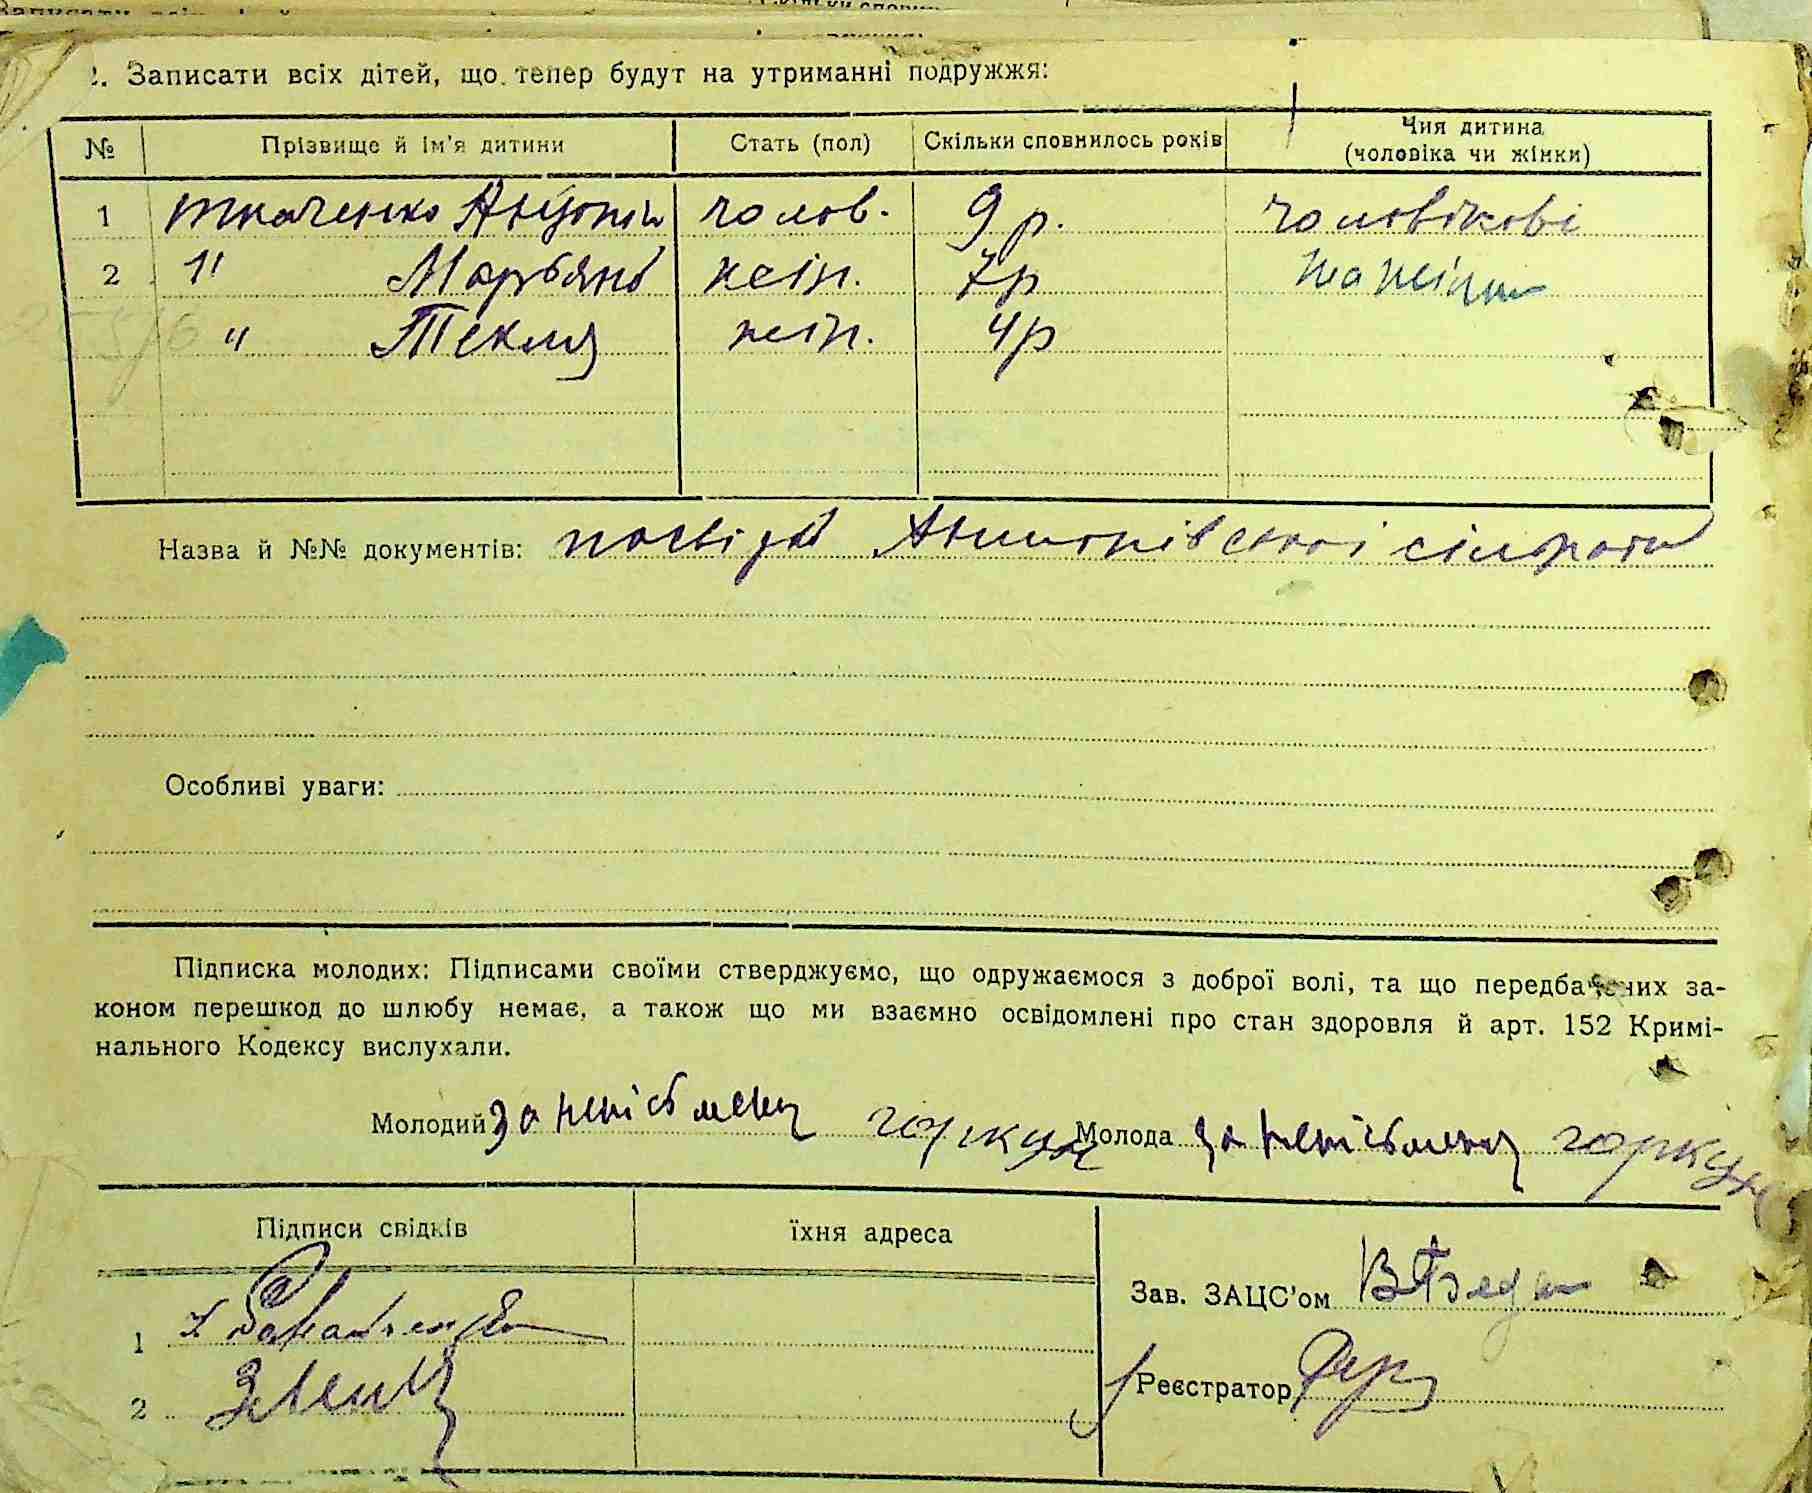 2. Записати всіх дітей, що тепер будут на утриманні подружжя:
№ Прізвище й ім'я дитини Стать (пол) Скільки сповнилось років Чия дитина (чоловіка чи жінки)
1 Ткаченко Антонін чолов. 9 р. чоловікові
2 " Марьяна жін. 7р та жінки
" Текля жін. 4р
Назва й №№ документів: посвідка Антонівської сільради
Особливі уваги:
Підписка молодих: Підписами своїми стверджуємо, що одружаємося з доброї волі, та що передбачених за-
коном перешкод до шлюбу немає, а також що ми взаємно освідомлені про стан здоровля й арт. 152 Кримі-
нального Кодексу вислухали.
Молодий за неписьмен Молода за неписьменну
Підписи свідків їхня адреса
Зав. ЗАЦС'ом
1
Реєстратор
2